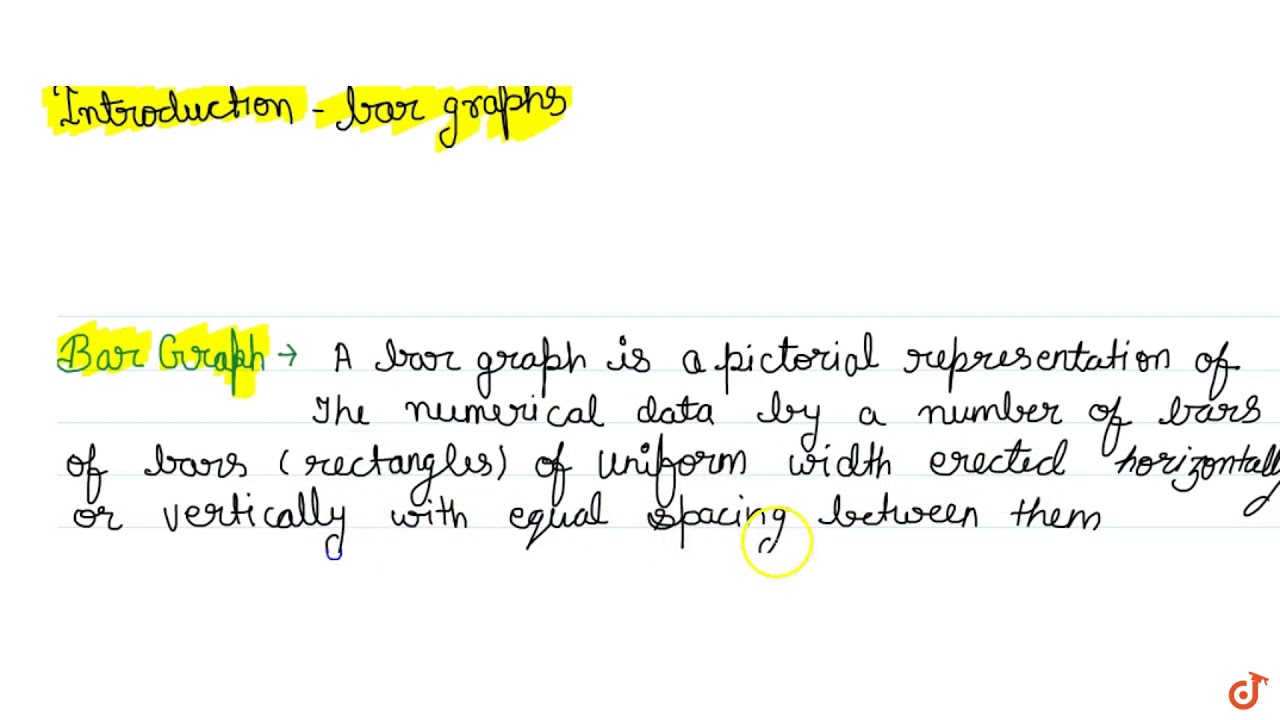 Introduction - bar graphs
Bar Graph → A bar graph is a pictorial representation of
The numerical data by a number of bars
of bars (rectangles) of uniform width erected horizontally
or vertically with equal spacing between them